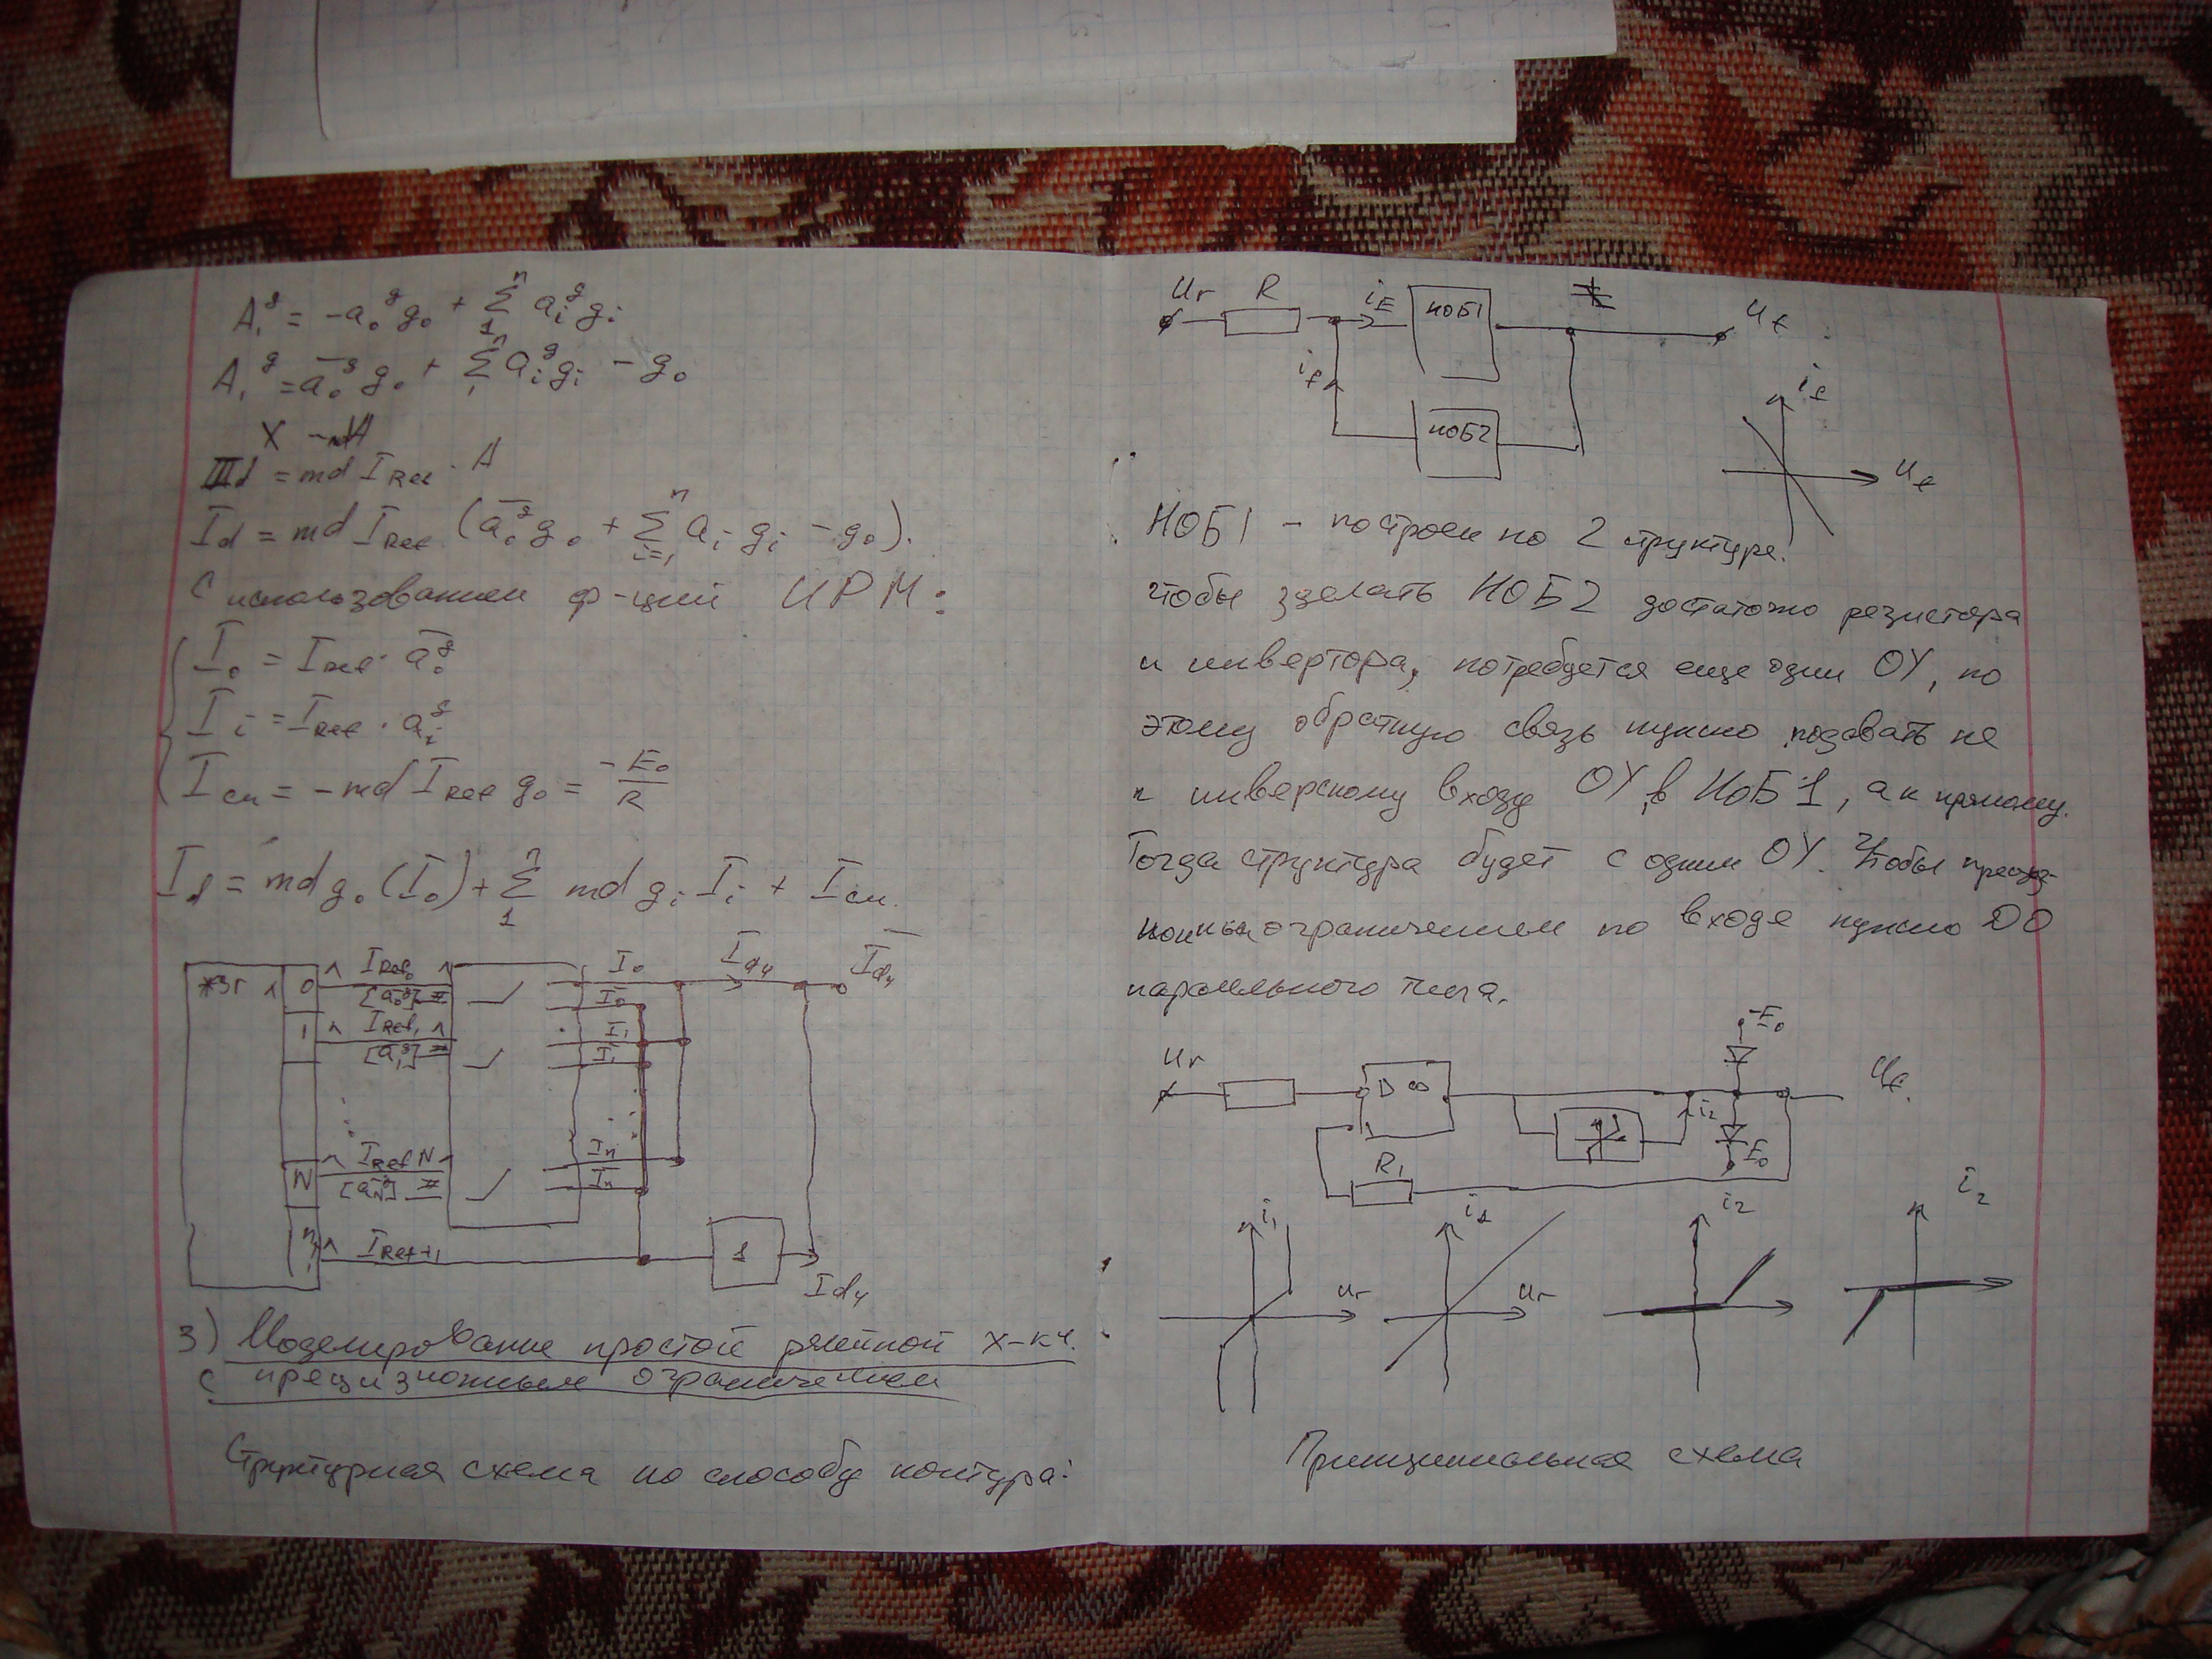 A₁^g = -a₀^g g₀ + Σ₁ⁿ aᵢ^g gᵢ
A₁^g = a̅₀^g g₀ + Σ₁ⁿ aᵢ^g gᵢ - g₀
X → A
I_d = md I_Ref · A
I_d = md I_Ref (a̅₀^g g₀ + Σ_{i=1}^n aᵢ gᵢ - g₀).
С использованием ф-ций ИРМ:
I₀ = I_Ref · a̅₀^g
Iᵢ = I_Ref · aᵢ^g
I_см = -md I_Ref g₀ = -E₀/R
I_d = md g₀ (I₀) + Σ₁ⁿ md gᵢ Iᵢ + I_см.
*ЗГ 0 I_Ref₀ [a₀^g] # I₀ I̅₀ I̅_dч I̅_dч
1 I_Ref₁ [a₁^g] # I₁ I̅₁
N I_Ref N [a_N^g] # Iₙ I̅ₙ
I_Ref+1 1 I_dч
3) Моделирование простой релейной х-ки
с прецизионным ограничением
Структурная схема по способу контура:
Uг R i_Σ НОБ1 U_f
i_f НОБ2
i_f U_f
НОБ1 – построен по 2 структуре.
чтобы зделать НОБ2 достаточно резистора
и инвертора, потребуется еще один ОУ, по
этому обратную связь нужно подавать не
к инверсному входу ОУ в НОБ1, а к прямому.
Тогда структура будет с одним ОУ. Чтобы
ограничением по входе нужно ДО
паралельного типа.
Uг D ∞ i₂ -E₀ E₀ U_f
R₁
i₁ Uг
i₁ Uг
i₂
i₂
Принципиальная схема